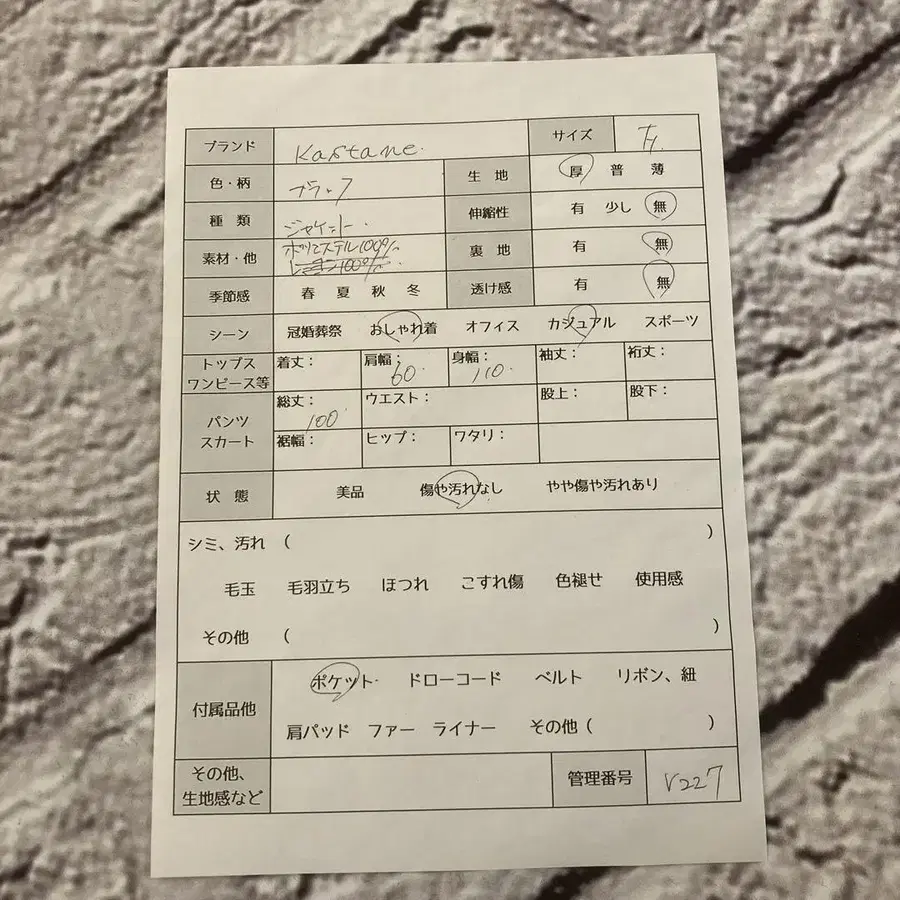 ブランド Kastane. サイズ F.
色・柄 ブラック 生地 厚 普 薄
種類 ジャケット. 伸縮性 有 少し 無
素材・他 ポリエステル100% 裏地 有 無
レーヨン100%.
季節感 春 夏 秋 冬 透け感 有 無
シーン 冠婚葬祭 おしゃれ着 オフィス カジュアル スポーツ
トップス ワンピース等 着丈: 肩幅: 60. 身幅: 110. 袖丈: 裄丈:
パンツ スカート 総丈: 100. ウエスト: 股上: 股下:
裾幅: ヒップ: ワタリ:
状態 美品 傷や汚れなし やや傷や汚れあり
シミ、汚れ ( )
毛玉 毛羽立ち ほつれ こすれ傷 色褪せ 使用感
その他 ( )
付属品他 ポケット ドローコード ベルト リボン、紐
肩パッド ファー ライナー その他 ( )
その他、生地感など 管理番号 V227